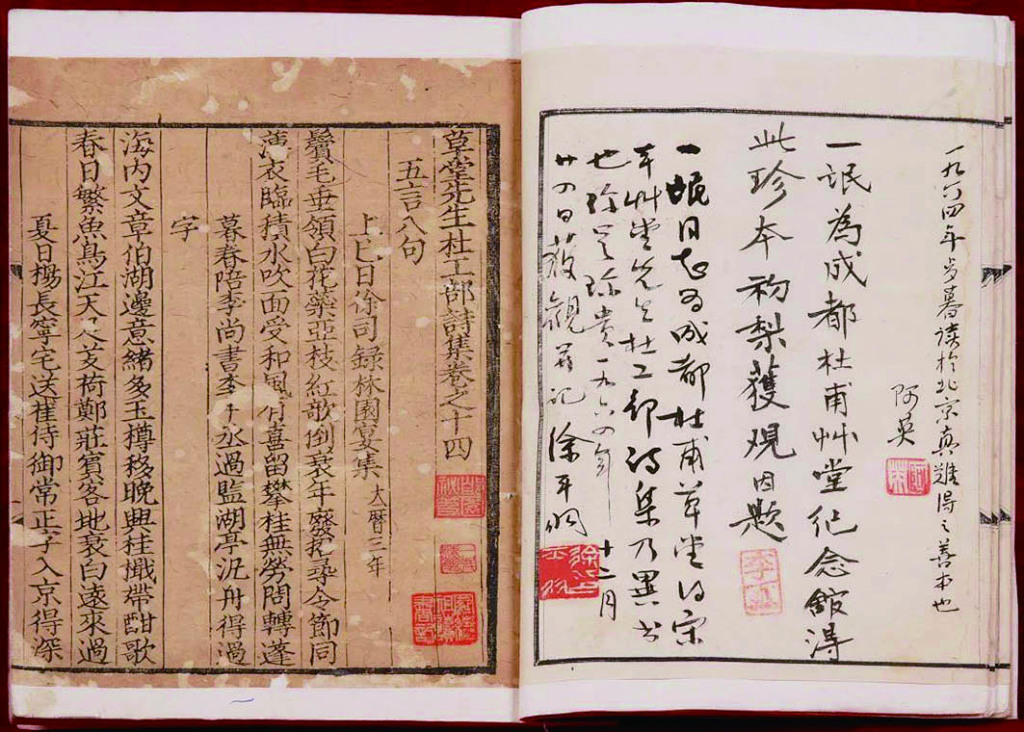 一九六四年岁暮读於北京真難得之善本也
阿英
一氓為成都杜甫艸堂纪念館得
此珍本初梨獲观因题
一氓同志为成都杜甫草堂得宋
本艸堂先生杜工部诗集乃異书
也珍贵一九六四年十二月
廿四日获觀并记徐平羽
草堂先生杜工部詩集卷之十四
五言八句
上巳日徐司録林園宴集 大曆三年
鬢毛垂領白花藥亞枝紅欹倒衰年廢招尋令節同
薄衣臨積水吹面受和風有喜留攀桂無勞問轉蓬
暮春陪李尚書李中丞過監湖亭汎舟得過
字
海内文章伯湖邊意緒多玉樽移晚興桂檝帶酣歌
春日繁魚鳥江天足芰荷鄭莊賓客地衰白遠來過
夏日楊長寧宅送崔侍御常正字入京得深